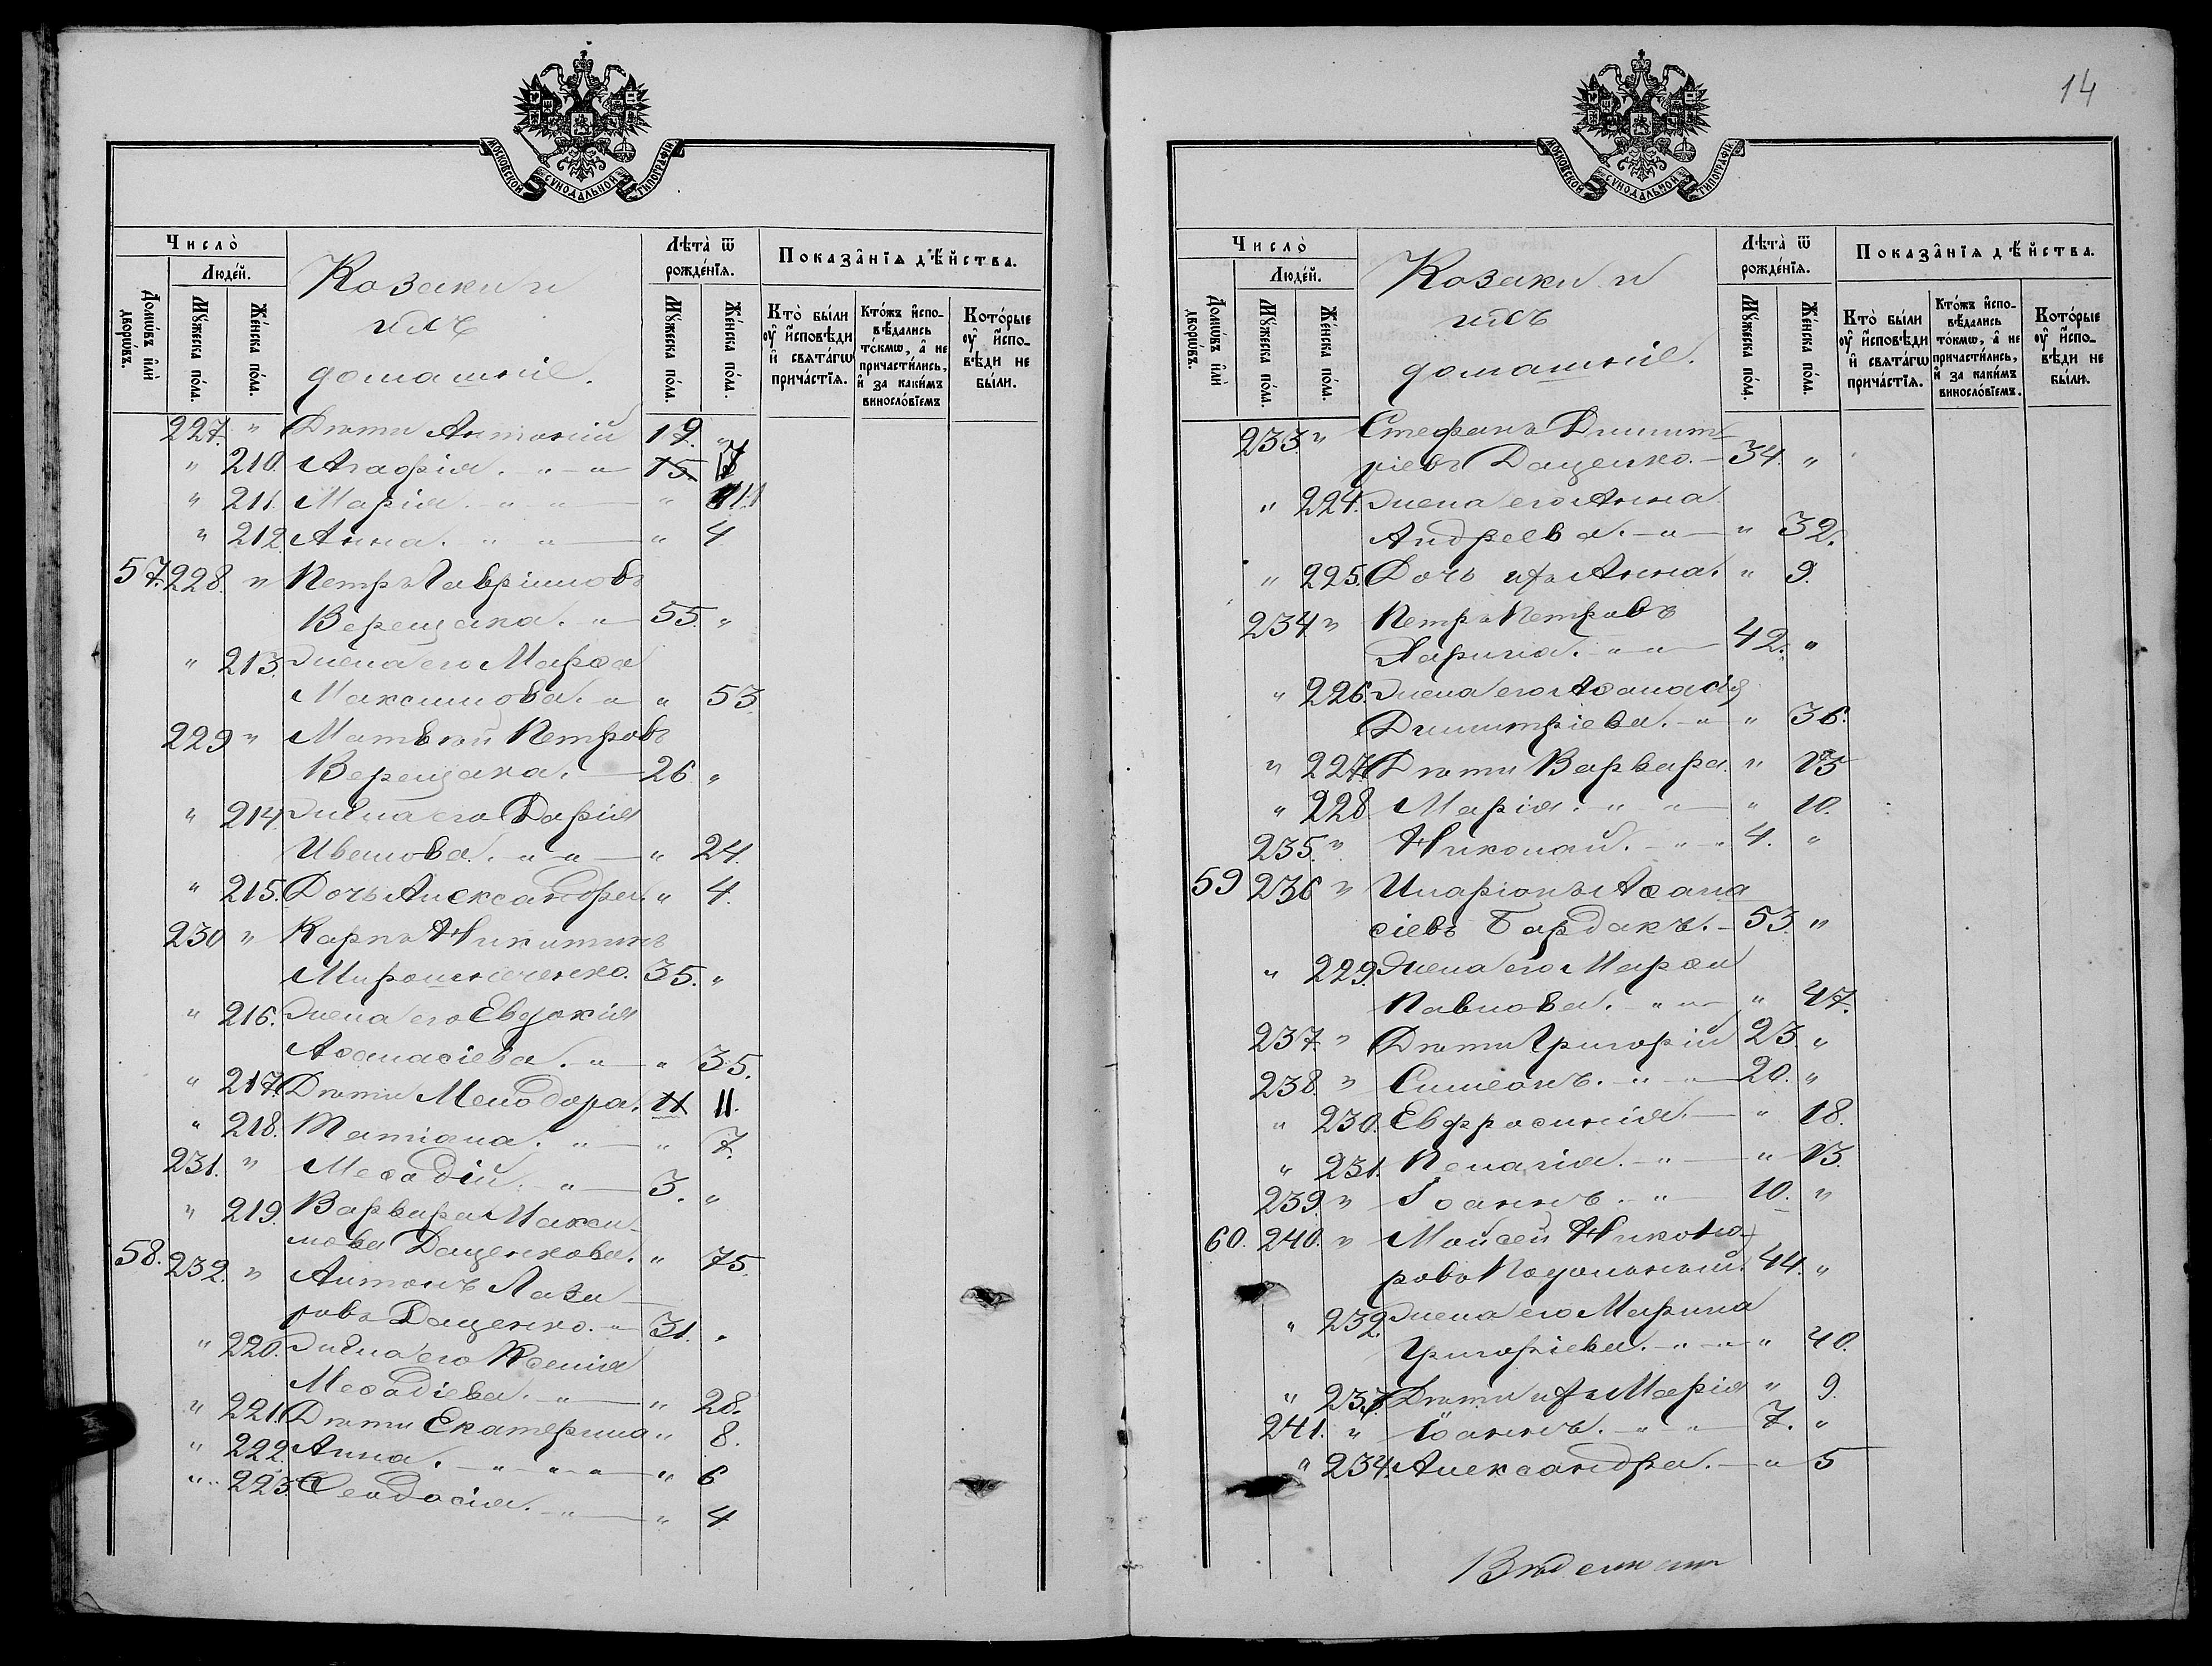 МОСКОВСКОЙ СУНОДАЛЬНОЙ ТИПОГРАФІИ
Число̀
Людéй.
Домѡ́въ и҆лѝ дворѡ́въ.
Мꙋ́жеска по́ла.
Же́нска по́ла.
Козаки и
ихъ
домашніе.
Лѣта̀ ѿ рожде́нїѧ.
Мꙋ́жеска по́ла.
Же́нска по́ла.
Показа̑нїѧ дѣ́йства.
Кто̀ бы́ли ᲂу҆ и҆́сповѣди и҆ свѧта́гѡ прича́стїѧ.
Кто́жъ и҆спо-вѣ́дались то́кмѡ, а҆ не причасти́лись, и҆ за каки́мъ винослóвїемъ
Кото́рые ᲂу҆ и҆́спо-вѣди не бы́ли.
227. " Дѣти Антоній 19. "
" 210. Агафія. " - " 15. 13
" 211. Марія. - " - " - " 11
" 212. Анна. " " - " 4
57. 228. " Петръ Гаврііловъ
Верещака. - " 55. "
" 213. Жена его Марѳа
Максимова. - " " 53
229 " Матѳей Петровъ
Верещака. - 26 "
" 214. Жена его Дарія
Иванова. - " - " - " 24.
" 215. Дочь Александра. " 4.
230 " Карпъ Никитинъ
Мирошниченко. 35. "
" 216. Жена его Евдокія
Аѳанасіева. - " - " 35.
" 217. Дѣти Минодора. 11 11.
" 218. Татіана. " - " 7.
231. " Меѳодій. - " - 3. "
" 219. Варвара Макси-
мова Даценкова. " 75.
58. 232. " Антонъ Лаза-
ровъ Даценко. - " 31. "
" 220. Жена его Ксенія
Меѳодіева. - " - " 28.
" 221. Дѣти Екатерина " 8.
" 222. Анна. - " - " - " - " 6
" 223. Ѳеодосія. - " - " 4
14
МОСКОВСКОЙ СУНОДАЛЬНОЙ ТИПОГРАФІИ
Число̀
Людéй.
Домѡ́въ и҆лѝ дворѡ́въ.
Мꙋ́жеска по́ла.
Же́нска по́ла.
Козаки и
ихъ
домашніе.
Лѣта̀ ѿ рожде́нїѧ.
Мꙋ́жеска по́ла.
Же́нска по́ла.
Показа̑нїѧ дѣ́йства.
Кто̀ бы́ли ᲂу҆ и҆́сповѣди и҆ свѧта́гѡ прича́стїѧ.
Кто́жъ и҆спо-вѣ́дались то́кмѡ, а҆ не причасти́лись, и҆ за каки́мъ винослóвїемъ.
Кото́рые ᲂу҆ и҆́спо-вѣди не бы́ли.
233 " Стефанъ Димит-
ріевъ Даценко. - 34. "
" 224. Жена его Анна
Андреева. - " - " 32.
" 225. Дочь ихъ Анна. " 9.
234 " Петръ Петровъ
Ларина. - " - " - 42. "
" 226. Жена его Аѳанасія
Димитріева. - " " 36.
" 227. Дѣти Варвара. " 13
" 228 Марія. - " - " 10.
235. " Николай. - " - " 4. "
59 236 " Иларіонъ Аѳана
сіевъ Бардакъ. - 53 "
" 229. Жена его Марѳа
Павлова. - " - " 47.
237. " Дѣти Григорій 23. "
238. " Симеонъ. - " - " 20. "
" 230. Евфросинія. - " 18.
" 231. Пелагія. - " - " 13.
239. " Іоаннъ. - " 10. "
60. 240. " Мойсей Никано-
ровъ Подольский. 44. "
" 232. Жена его Марина
Григоріева. - " - " " 40.
" 233. Дѣти ихъ Марія " 9.
241. " Іоаннъ. - " - " 7. "
" 234. Александра. - " 5